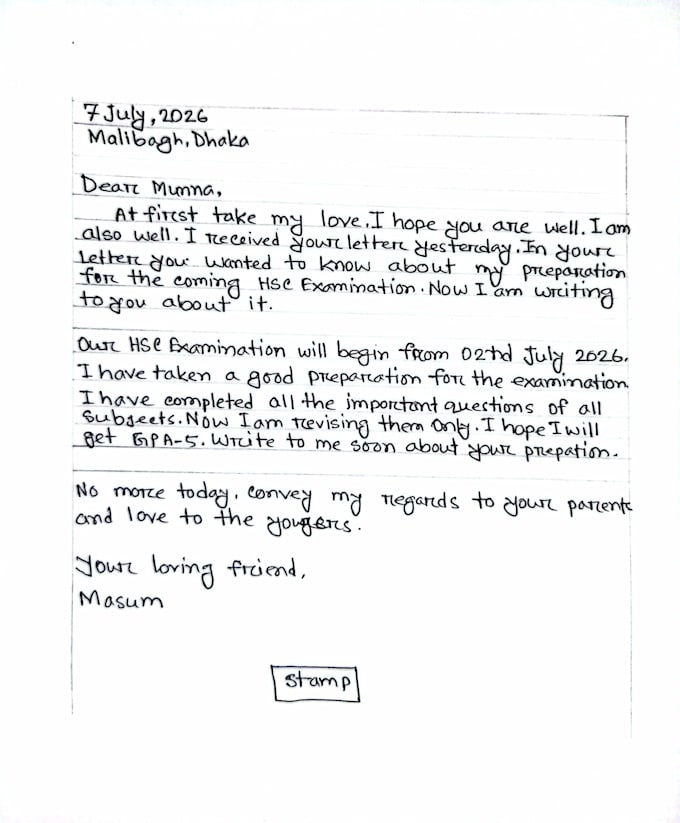 7 July, 2026
Malibagh, Dhaka
Dear Munna,
At first take my love. I hope you are well. I am
also well. I received your letter yesterday. In your
letter you wanted to know about my preparation
for the coming HSC Examination. Now I am writing
to you about it.
Our HSC Examination will begin from 02nd July 2026.
I have taken a good preparation for the examination
I have completed all the important questions of all
subjects. Now I am revising them only. I hope I will
get GPA-5. Write to me soon about your prepation.
No more today. convey my regards to your parents
and love to the yougers.
Your loving friend,
Masum
Stamp